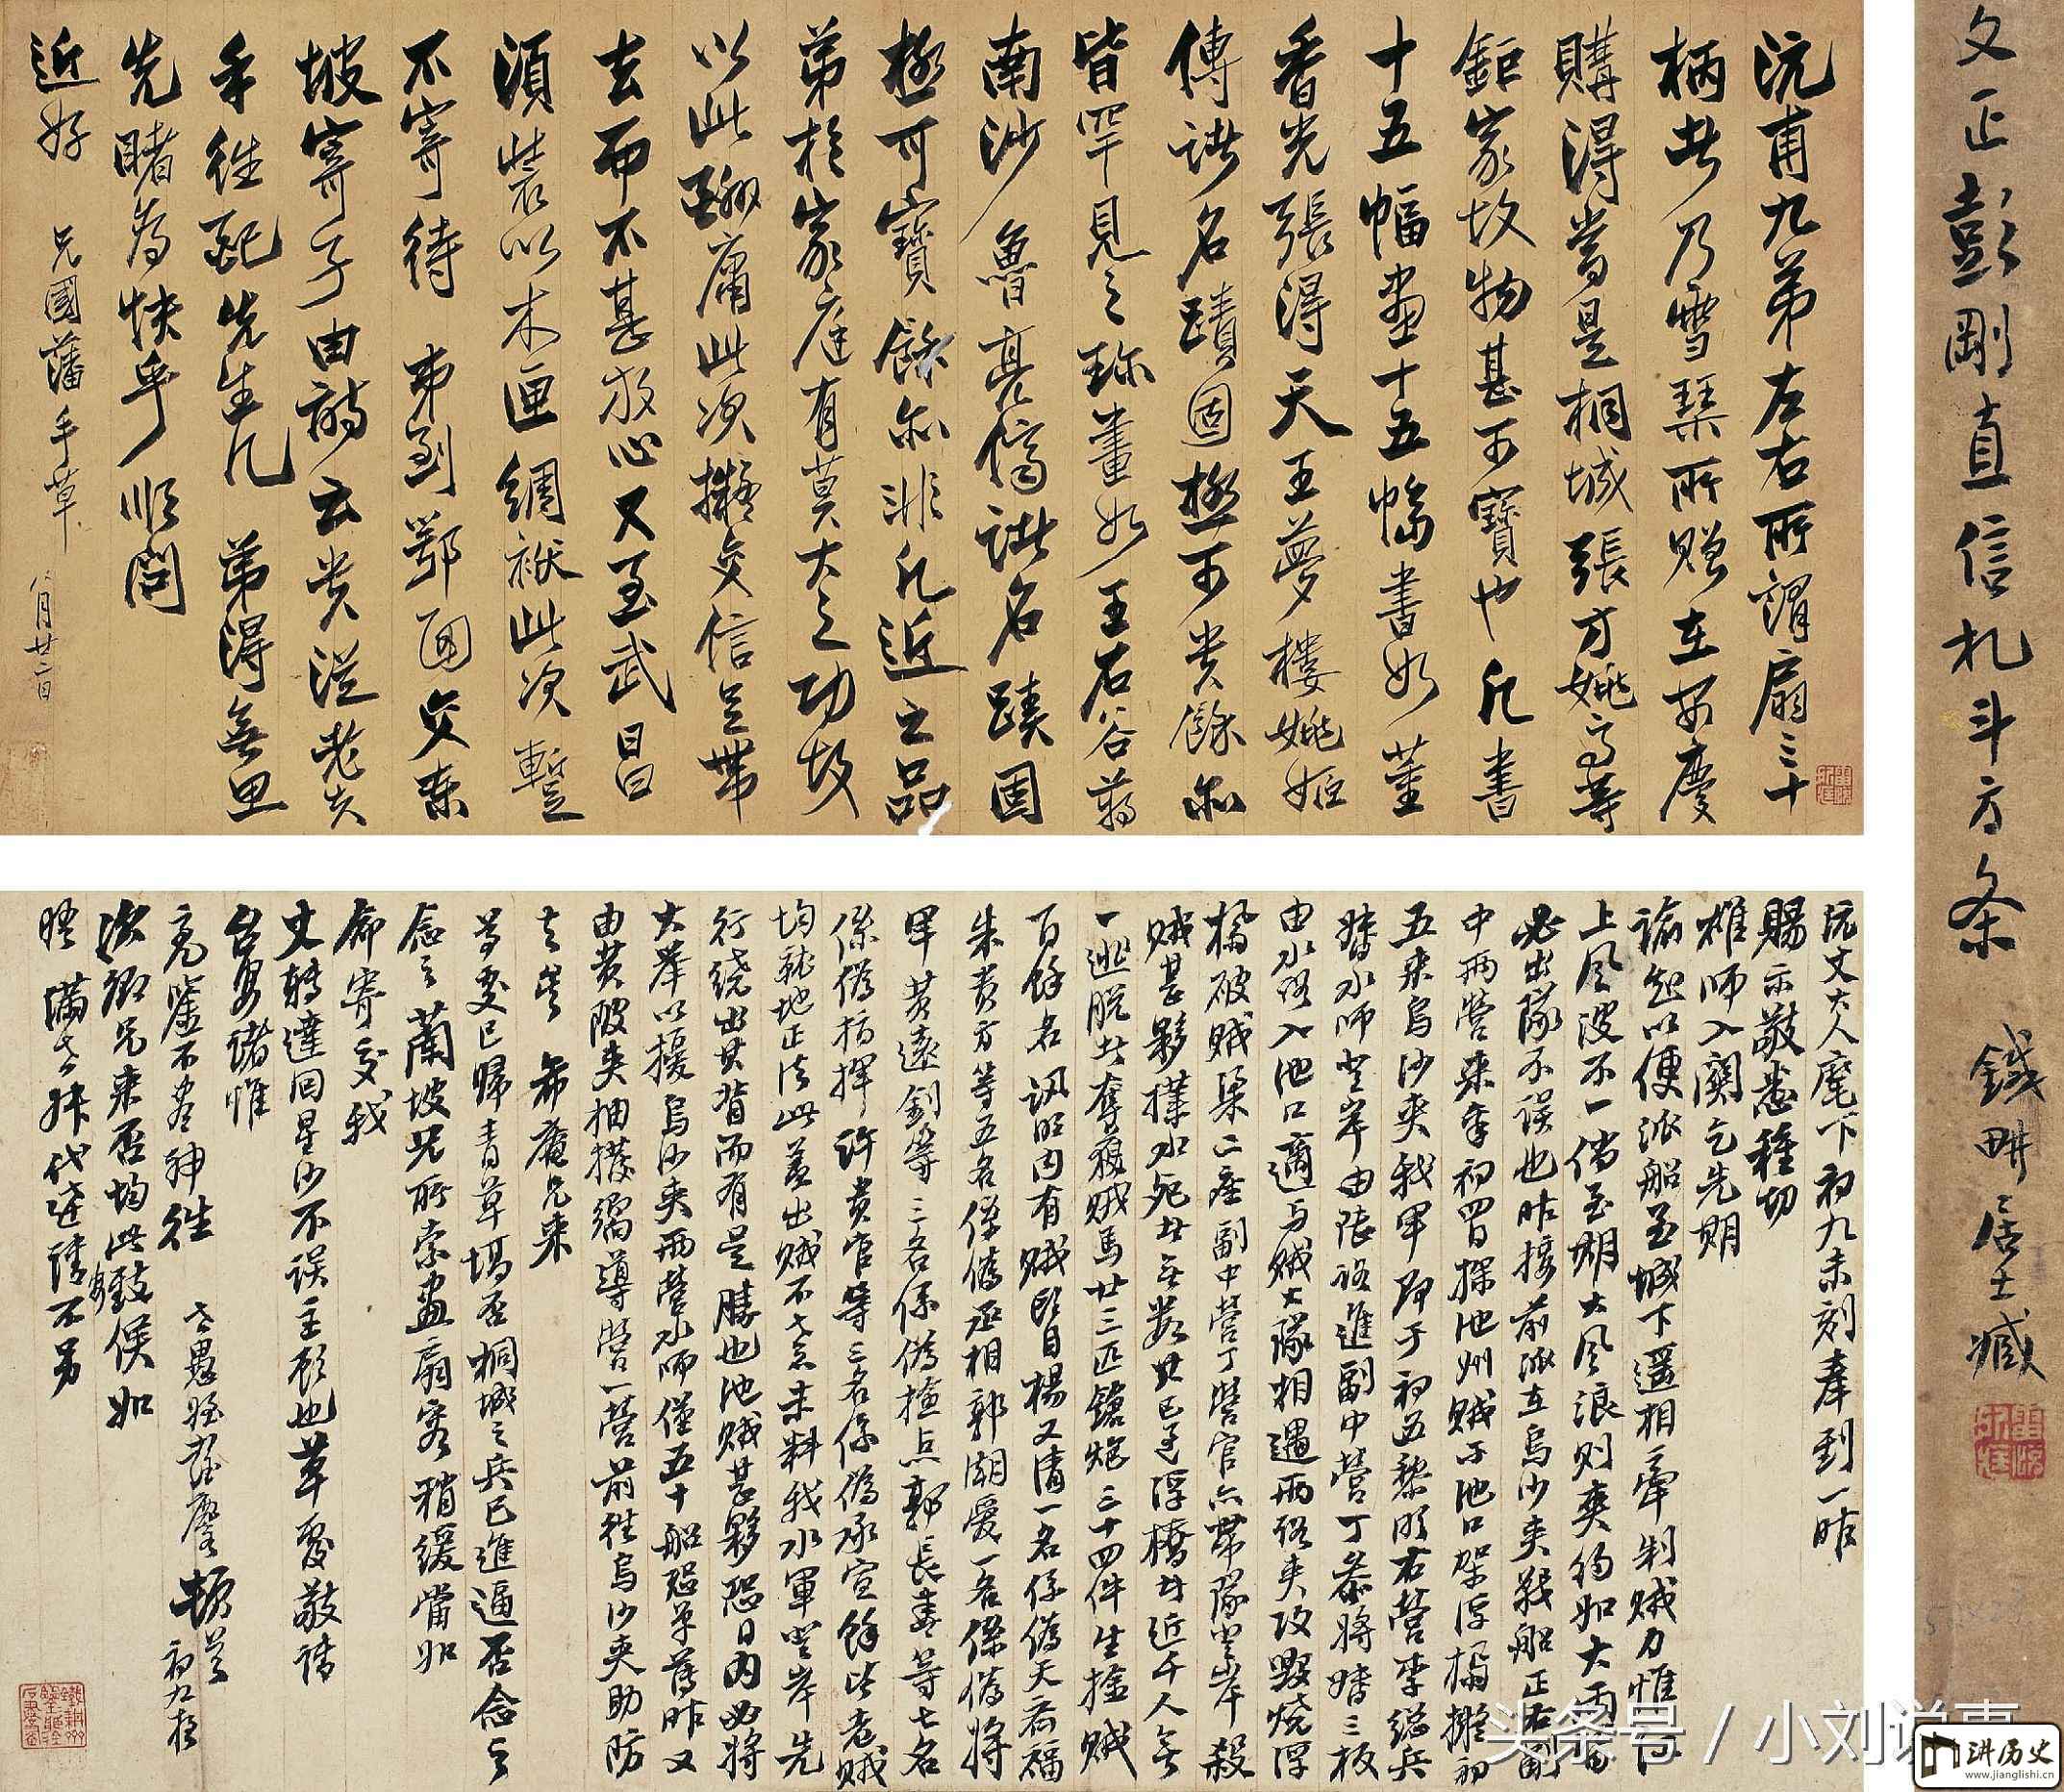 沅甫九弟左右所謂扇三十
柄者乃雪琴所贈在安慶
購得當是桐城張方姚馬等
鉅家故物甚可寶也凡書
十五幅畫十五幅書如董
香光張得天王夢樓姚姬
傳諸名蹟固極可貴餘亦
皆罕見之珍畫如王石谷蔣
南沙魯亮儕諸名蹟固
極可寶餘亦非凡近之品
弟於家庭有莫大之功故
以此酬庸此次擬交信足帶
去而不甚放心又至武昌
須裝以木匣綢袱此次暫
不寄待弟到鄂面交東
坡寄子由詩云貴從老夫
手往配先生几弟得無思
先睹為快乎順問
近好 兄國藩手草 八月廿二日
沅丈大人麾下初九未刻奉到一昨
賜示敬悉種切
雄師入關乞先期
諭知以便派船至城下遥相牽制賊力惟
上風波不一倘至期大風浪則爽約如大雨
必出隊不誤也昨接前派在烏沙夾戰船正右副
中兩營來牽初四日探池州賊于池口架浮橋擬初
五來烏沙夾我軍即于初五黎明右營李總兵
水師登岸由陸路進副中營丁參將三板
由水路入池口適與賊大隊相遇兩路夾攻毀燒浮
橋破賊渠二座副中營丁營官亦帶隊登岸殺
賊甚夥撲水死者無數其已過浮橋者近千人無
一逃脱者奪獲賊馬廿三匹鎗炮三十四件生擒賊
百餘名訊明内有賊頭目楊又清一名係偽天福
朱貴方等五名係偽丞相郭湖愛一名係偽將
軍黄遠釗等三名係偽檢点郭長春等七名
係偽指揮許貴官等三名係偽承宣餘皆老賊
均就地正法此蓋出賊不意未料我水軍登岸先
行繞出其背而有是勝也池賊甚夥恐日内必將
大舉以擾烏沙夾兩營水師僅五十船恐單薄昨又
由黄陂夾抽撥嚮導營一營前往烏沙夾助防
去矣 希庵兄來
等更已歸青草塥否桐城之兵已進逼否念之
念之蘭坡兄所索畫扇容稍緩當如
命寄交我
丈轉達因星沙不誤主顧也草更敬請
台安諸惟
亮鑒不盡神往 世愚姪彭玉麐頓首 初九夜
次卿兄來否均此致候如
晤滿世叔代達請不另
文正彭剛直信札斗方条 鐵畊居士藏
头条号 / 小刘说事
讲历史
www.jianglishi.cn